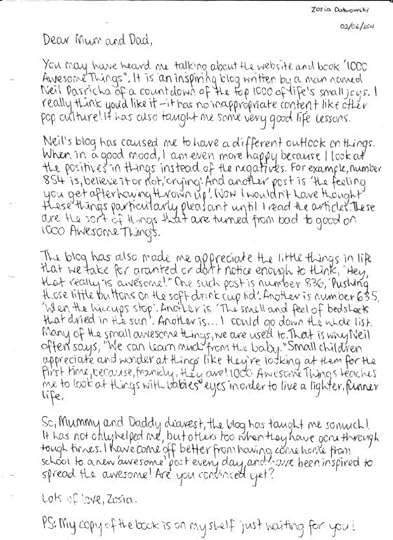 Zosia Dabrowski
02/06/2011
Dear Mum and Dad,
You may have heard me talking about the website and book '1000
Awesome Things'. It is an inspiring blog written by a man named
Neil Pasricha of a countdown of the top 1000 of life's small joys. I
really think you'd like it - it has no inappropriate content like other
pop culture! It has also taught me some very good life lessons.
Neil's blog has caused me to have a different outlook on things.
When in a good mood, I am even more happy because I look at
the positives in things instead of the negatives. For example, number
854 is, believe it or not, 'crying'. And another post is 'the feeling
you get after having thrown up'. Now I wouldn't have thought
these things particularly pleasant until I read the articles. These
are the sort of things that are turned from bad to good on
1000 Awesome Things.
The blog has also made me appreciate the little things in life
that we take for granted or don't notice enough to think, "Hey,
that really is awesome!" One such post is number 836, 'Pushing
those little buttons on the soft drink cup lid'. Another is number 635,
'When the hiccups stop'. Another is 'The smell and feel of bedsheets
that dried in the sun'. Another is... I could go down the whole list.
Many of the small awesome things, we are used to. That is why Neil
often says, "We can learn much from the baby." Small children
appreciate and wonder at things like they're looking at them for the
first time, because, frankly, they are! 1000 Awesome Things teaches
me to look at things with babies' eyes in order to live a lighter, funner
life.
So, Mummy and Daddy dearest, the blog has taught me so much!
It has not only helped me, but others too when they have gone through
tough times. I have come off better from having come home from
school to a new 'awesome' post every day, and have been inspired to
spread the awesome! Are you convinced yet?
Lots of love, Zosia.
PS: My copy of the book is on my shelf just waiting for you!